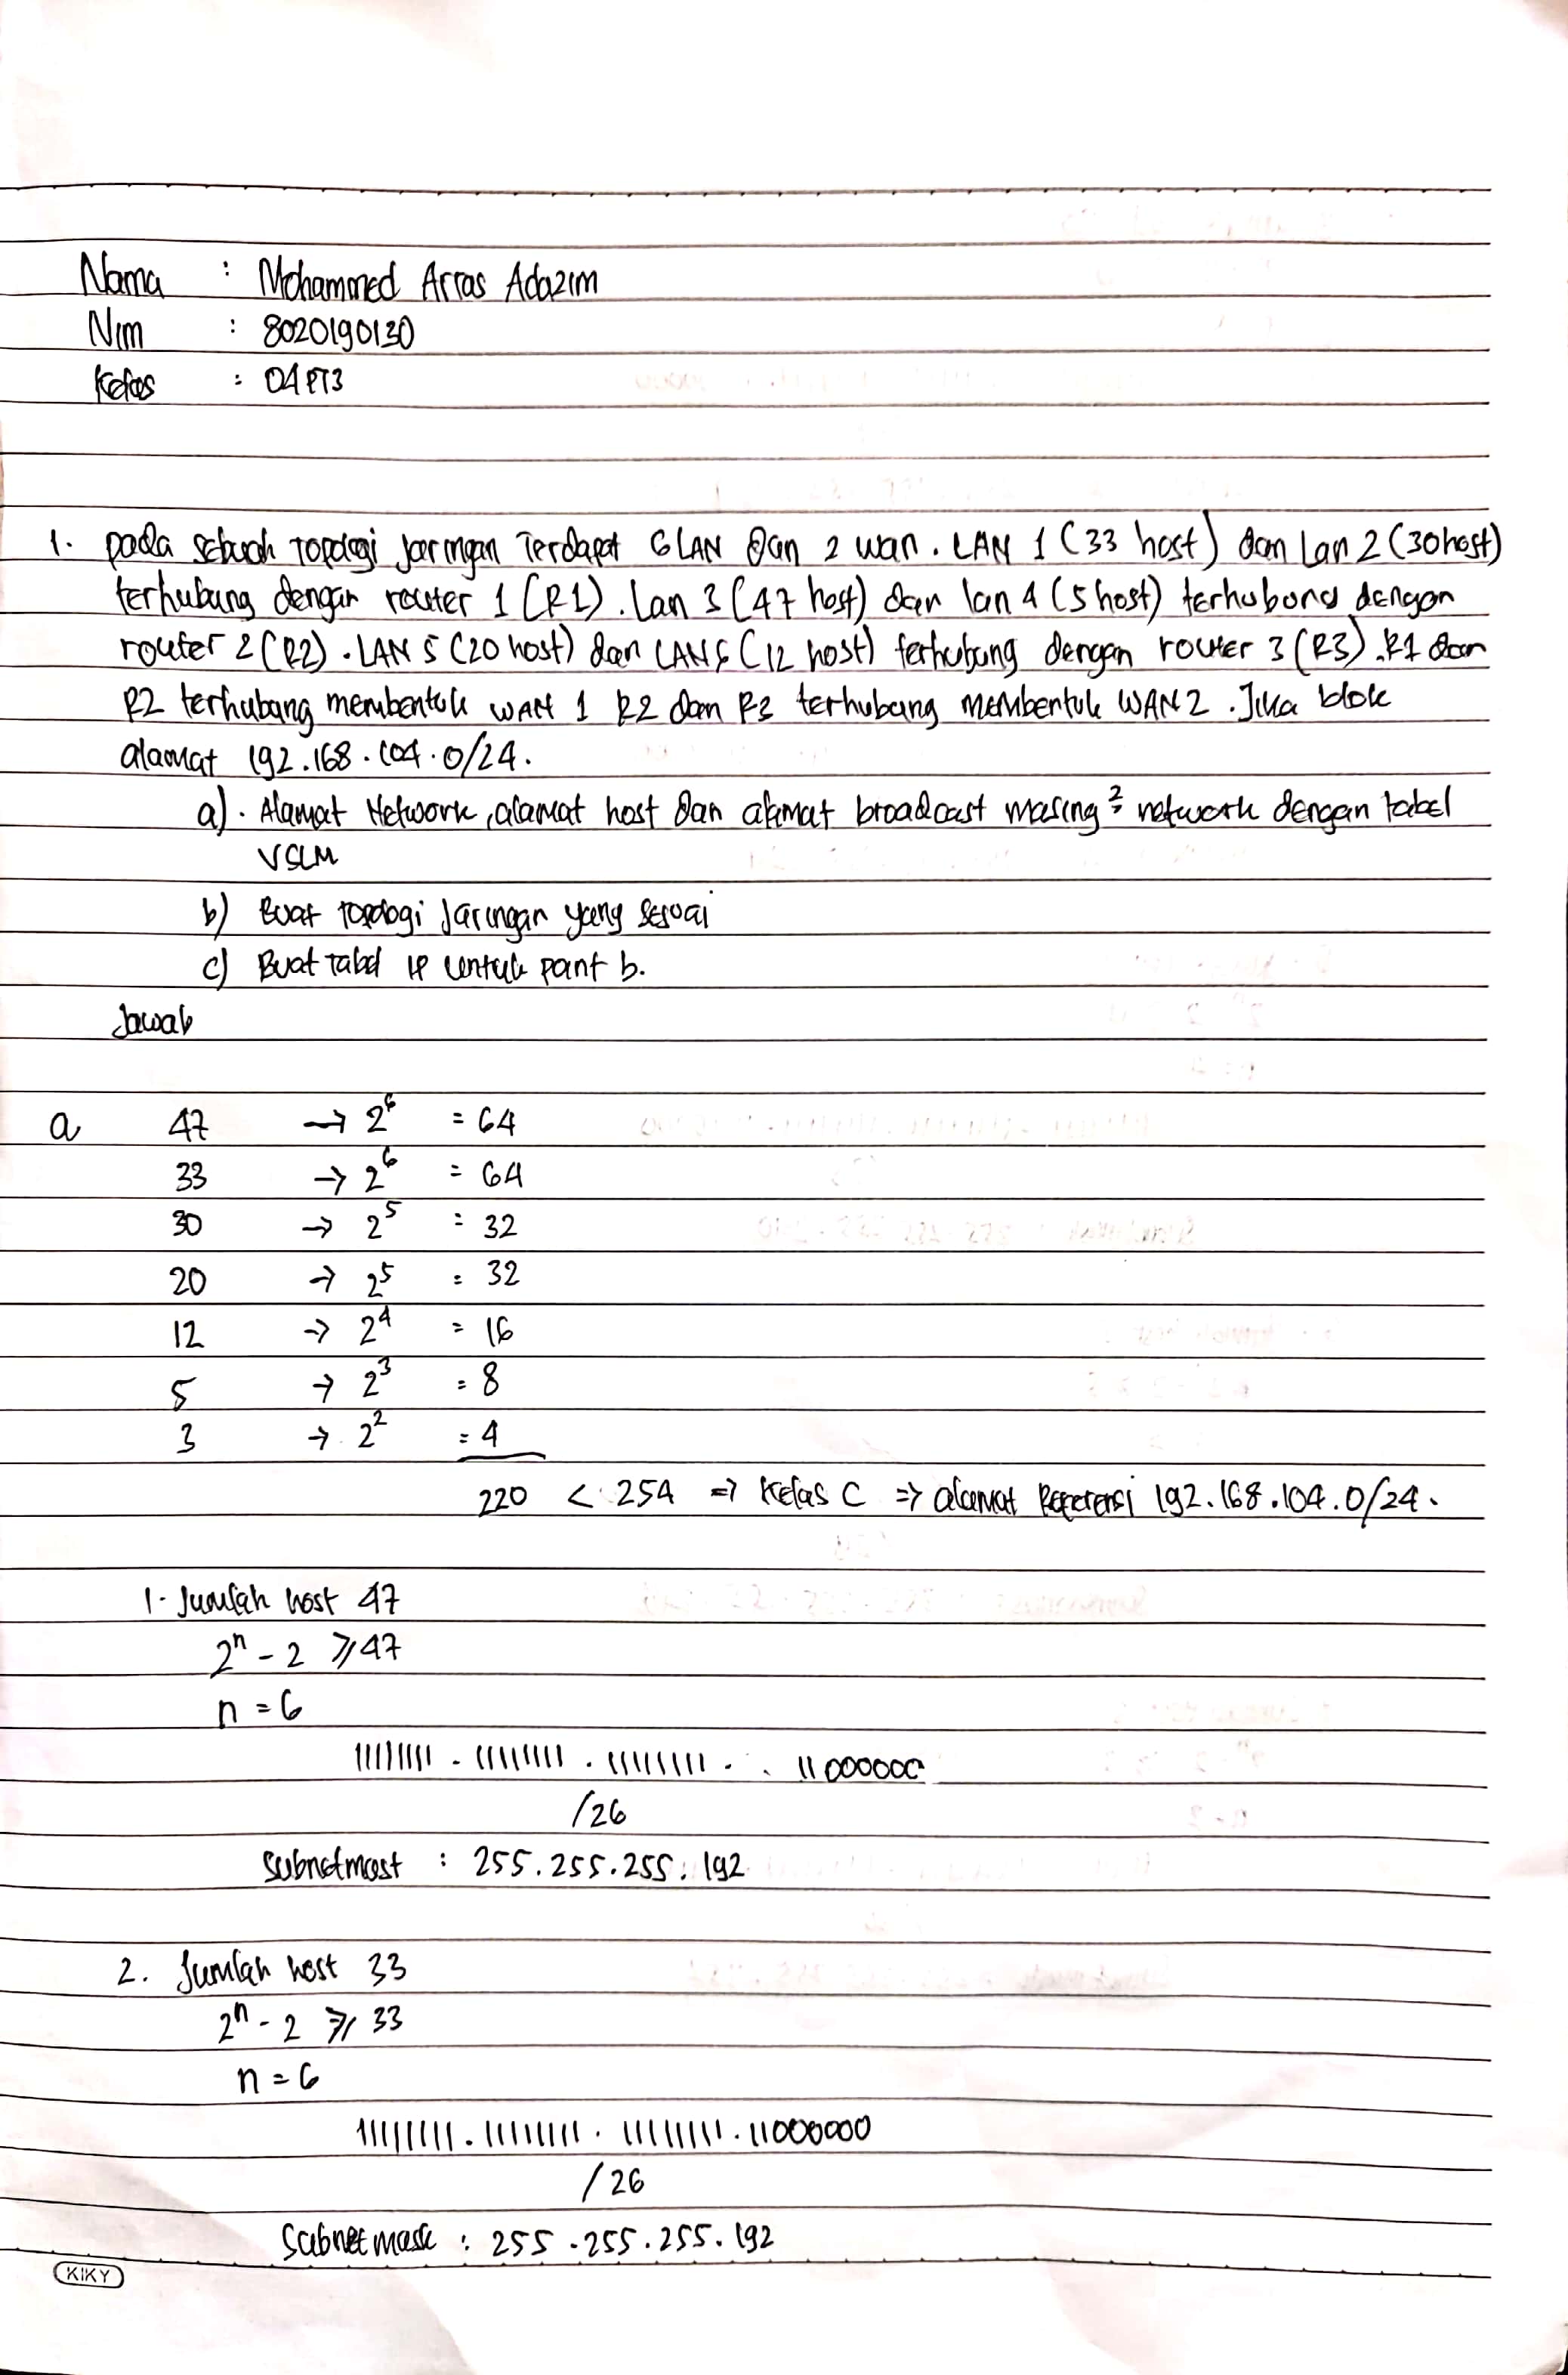 Nama : Mohammed Arras Adazim
Nim : 8020190130
Kelas : 04PT3
1. pada sebuah Topologi jaringan Terdapat 6 LAN Dan 2 wan. LAN 1 (33 host) dan Lan 2 (30 host)
terhubung dengan router 1 (R1). Lan 3 (47 host) dan lan 4 (5 host) terhubung dengan
router 2 (R2). LAN 5 (20 host) dan LAN 6 (12 host) terhubung dengan router 3 (R3). R1 dan
R2 terhubung membentuk WAN 1 R2 dan R3 terhubung membentuk WAN 2. Jika blok
alamat 192.168.104.0/24.
a). Alamat Network, alamat host dan alamat broadcast masing² network dengan tabel
VSLM
b) Buat topologi Jaringan yang sesuai
c) Buat tabel IP untuk point b.
Jawab
a 47 → 2⁶ = 64
33 → 2⁶ = 64
30 → 2⁵ = 32
20 → 2⁵ = 32
12 → 2⁴ = 16
5 → 2³ = 8
3 → 2² = 4
220 < 254 ⇒ Kelas C ⇒ alamat Referensi 192.168.104.0/24.
1. Jumlah host 47
2ⁿ - 2 ⩾ 47
n = 6
11111111 . 11111111 . 11111111 . . 11000000
/26
Subnetmast : 255.255.255.192
2. Jumlah host 33
2ⁿ - 2 ⩾ 33
n = 6
11111111.11111111.11111111.11000000
/26
Subnetmask : 255.255.255.192
KIKY